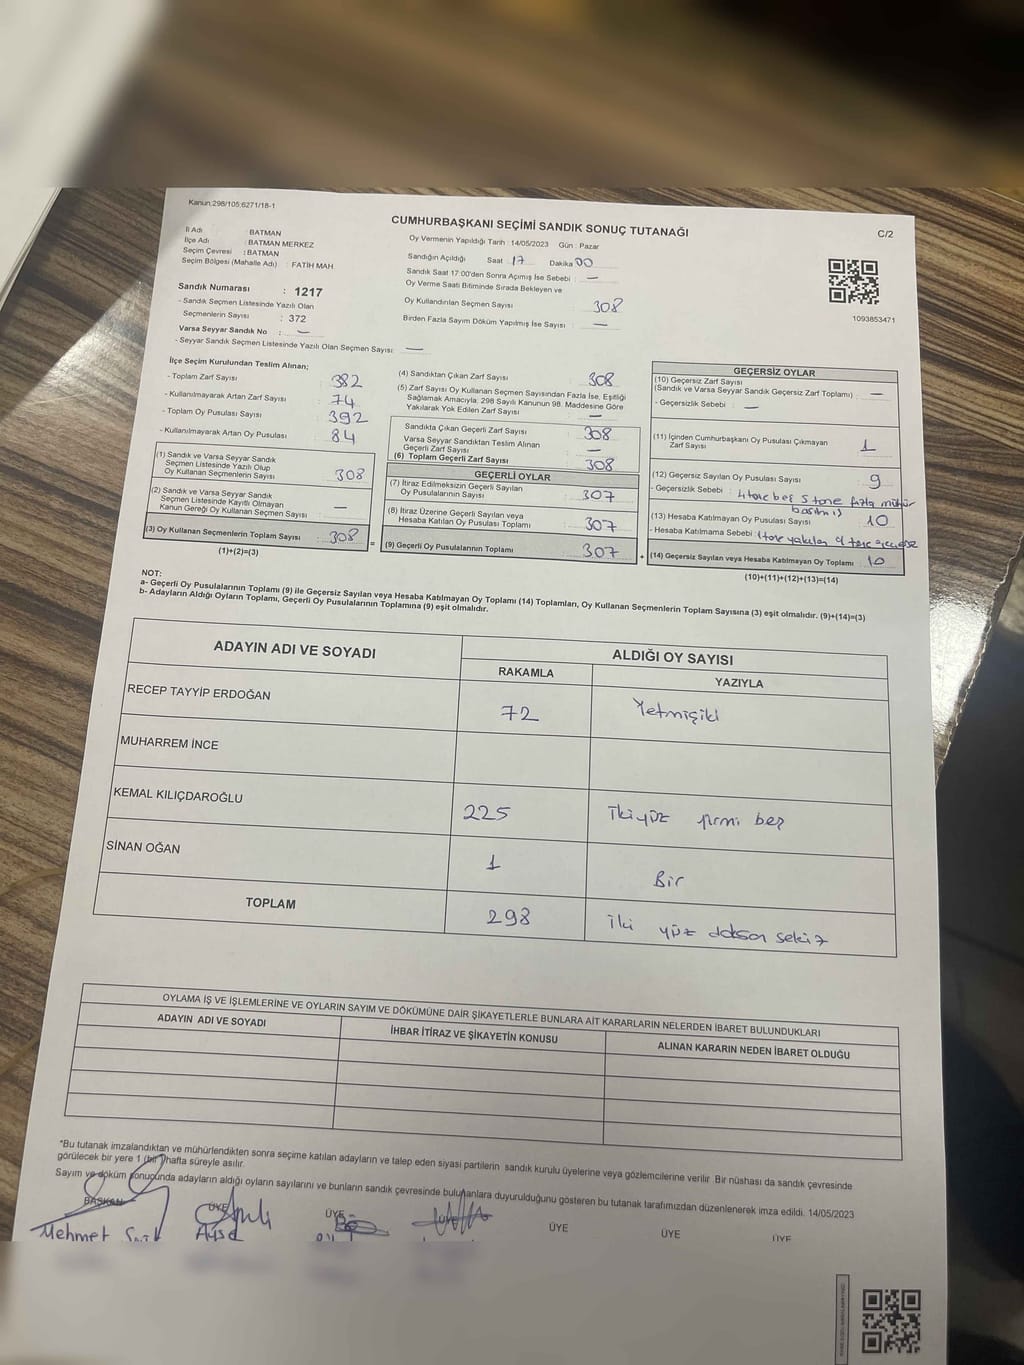 Kanun:298/105;6271/18-1
CUMHURBAŞKANI SEÇİMİ SANDIK SONUÇ TUTANAĞI
C/2
İl Adı : BATMAN
İlçe Adı : BATMAN MERKEZ
Seçim Çevresi : BATMAN
Seçim Bölgesi (Mahalle Adı) : FATİH MAH
Sandık Numarası : 1217
- Sandık Seçmen Listesinde Yazılı Olan
Seçmenlerin Sayısı : 372
Varsa Seyyar Sandık No : —
- Seyyar Sandık Seçmen Listesinde Yazılı Olan Seçmen Sayısı : —
Oy Vermenin Yapıldığı Tarih : 14/05/2023 Gün : Pazar
Sandığın Açıldığı Saat 17 Dakika 00
Sandık Saat 17:00'den Sonra Açımış İse Sebebi : —
Oy Verme Saati Bitiminde Sırada Bekleyen ve
Oy Kullandırılan Seçmen Sayısı 308
Birden Fazla Sayım Döküm Yapılmış İse Sayısı : —
1093853471
İlçe Seçim Kurulundan Teslim Alınan;
- Toplam Zarf Sayısı : 382
- Kullanılmayarak Artan Zarf Sayısı : 74
- Toplam Oy Pusulası Sayısı : 392
- Kullanılmayarak Artan Oy Pusulası : 84
(1) Sandık ve Varsa Seyyar Sandık
Seçmen Listesinde Yazılı Olup
Oy Kullanan Seçmenlerin Sayısı : 308
(2) Sandık ve Varsa Seyyar Sandık
Seçmen Listesinde Kayıtlı Olmayan
Kanun Gereği Oy Kullanan Seçmen Sayısı : —
(3) Oy Kullanan Seçmenlerin Toplam Sayısı : 308
(1)+(2)=(3)
(4) Sandıktan Çıkan Zarf Sayısı : 308
(5) Zarf Sayısı Oy Kullanan Seçmen Sayısından Fazla İse, Eşitliği
Sağlamak Amacıyla; 298 Sayılı Kanunun 98. Maddesine Göre
Yakılarak Yok Edilen Zarf Sayısı : —
Sandıkta Çıkan Geçerli Zarf Sayısı : 308
Varsa Seyyar Sandıktan Teslim Alınan
Geçerli Zarf Sayısı : —
(6) Toplam Geçerli Zarf Sayısı : 308
GEÇERLİ OYLAR
(7) İtiraz Edilmeksizin Geçerli Sayılan
Oy Pusulalarının Sayısı : 307
(8) İtiraz Üzerine Geçerli Sayılan veya
Hesaba Katılan Oy Pusulası Toplamı : 307
= (9) Geçerli Oy Pusulalarının Toplamı : 307 +
GEÇERSİZ OYLAR
(10) Geçersiz Zarf Sayısı
(Sandık ve Varsa Seyyar Sandık Geçersiz Zarf Toplamı) : —
- Geçersizlik Sebebi : —
(11) İçinden Cumhurbaşkanı Oy Pusulası Çıkmayan
Zarf Sayısı : 1
(12) Geçersiz Sayılan Oy Pusulası Sayısı : 9
- Geçersizlik Sebebi : 4 tane boş 5 tane fazla mühür
basılmış
(13) Hesaba Katılmayan Oy Pusulası Sayısı : 10
- Hesaba Katılmama Sebebi : 1 tane yakılan 9 tane
(14) Geçersiz Sayılan veya Hesaba Katılmayan Oy Toplamı : 10
(10)+(11)+(12)+(13)=(14)
NOT:
a- Geçerli Oy Pusulalarının Toplamı (9) ile Geçersiz Sayılan veya Hesaba Katılmayan Oy Toplamı (14) Toplamları, Oy Kullanan Seçmenlerin Toplam Sayısına (3) eşit olmalıdır. (9)+(14)=(3)
b- Adayların Aldığı Oyların Toplamı, Geçerli Oy Pusulalarının Toplamına (9) eşit olmalıdır.
ADAYIN ADI VE SOYADI ALDIĞI OY SAYISI
RAKAMLA YAZIYLA
RECEP TAYYİP ERDOĞAN 72 Yetmişiki
MUHARREM İNCE
KEMAL KILIÇDAROĞLU 225 İkiyüz yirmi beş
SİNAN OĞAN 1 Bir
TOPLAM 298 İki yüz doksan sekiz
OYLAMA İŞ VE İŞLEMLERİNE VE OYLARIN SAYIM VE DÖKÜMÜNE DAİR ŞİKAYETLERLE BUNLARA AİT KARARLARIN NELERDEN İBARET BULUNDUKLARI
ADAYIN ADI VE SOYADI İHBAR İTİRAZ VE ŞİKAYETİN KONUSU ALINAN KARARIN NEDEN İBARET OLDUĞU
*Bu tutanak imzalandıktan ve mühürlendikten sonra seçime katılan adayların ve talep eden siyasi partilerin sandık kurulu üyelerine veya gözlemcilerine verilir. Bir nüshası da sandık çevresinde
görülecek bir yere 1 (bir) hafta süreyle asılır.
Sayım ve döküm sonucunda adayların aldığı oyların sayılarını ve bunların sandık çevresinde bulunanlara duyurulduğunu gösteren bu tutanak tarafımızdan düzenlenerek imza edildi. 14/05/2023
BAŞKAN ÜYE ÜYE ÜYE ÜYE ÜYE ÜYE
Mehmet